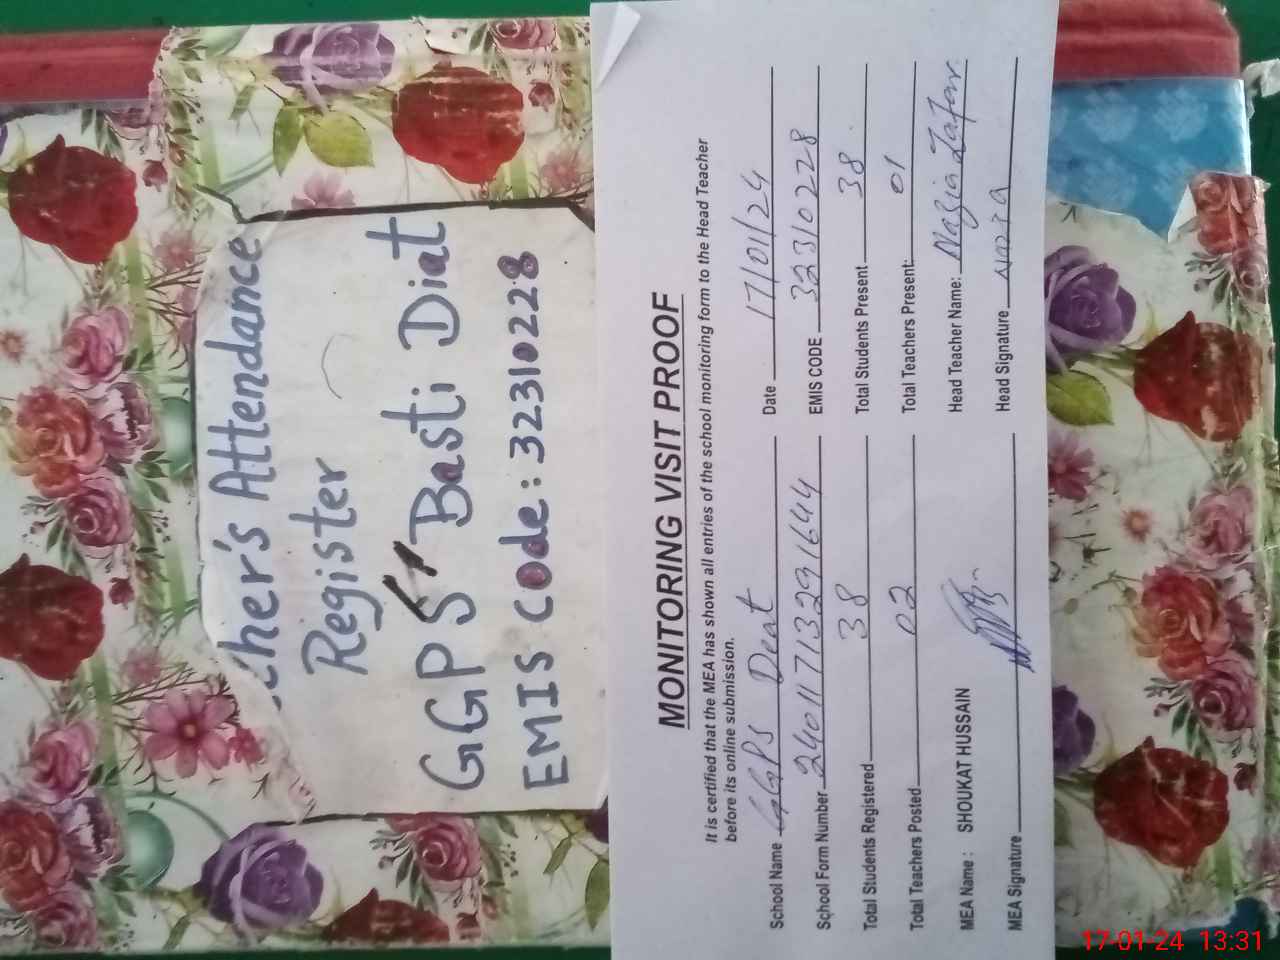 cher's Attendance
Register
GGPS Basti Diat
EMIS Code: 32310228
MONITORING VISIT PROOF
It is certified that the MEA has shown all entries of the school monitoring form to the Head Teacher
before its online submission.
School Name GGPS Deat Date 17/01/24
School Form Number 24011713291644 EMIS CODE 32310228
Total Students Registered 38 Total Students Present 38
Total Teachers Posted 02 Total Teachers Present: 01
MEA Name : SHOUKAT HUSSAIN Head Teacher Name: Nazia Zafar
MEA Signature Head Signature
17-01-24 13:31